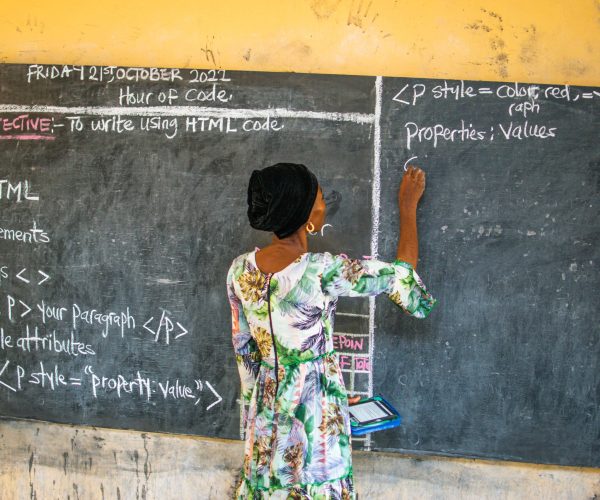 FRIDAY 21ST OCTOBER 2022
Hour of Code.
ECTIVE:- To write using HTML code.
TML
ements
s < >
p > your paragraph </p>
le attributes
<p style = "property: value",>
<p style = color: red, =
raph
Properties: values
EPOIN